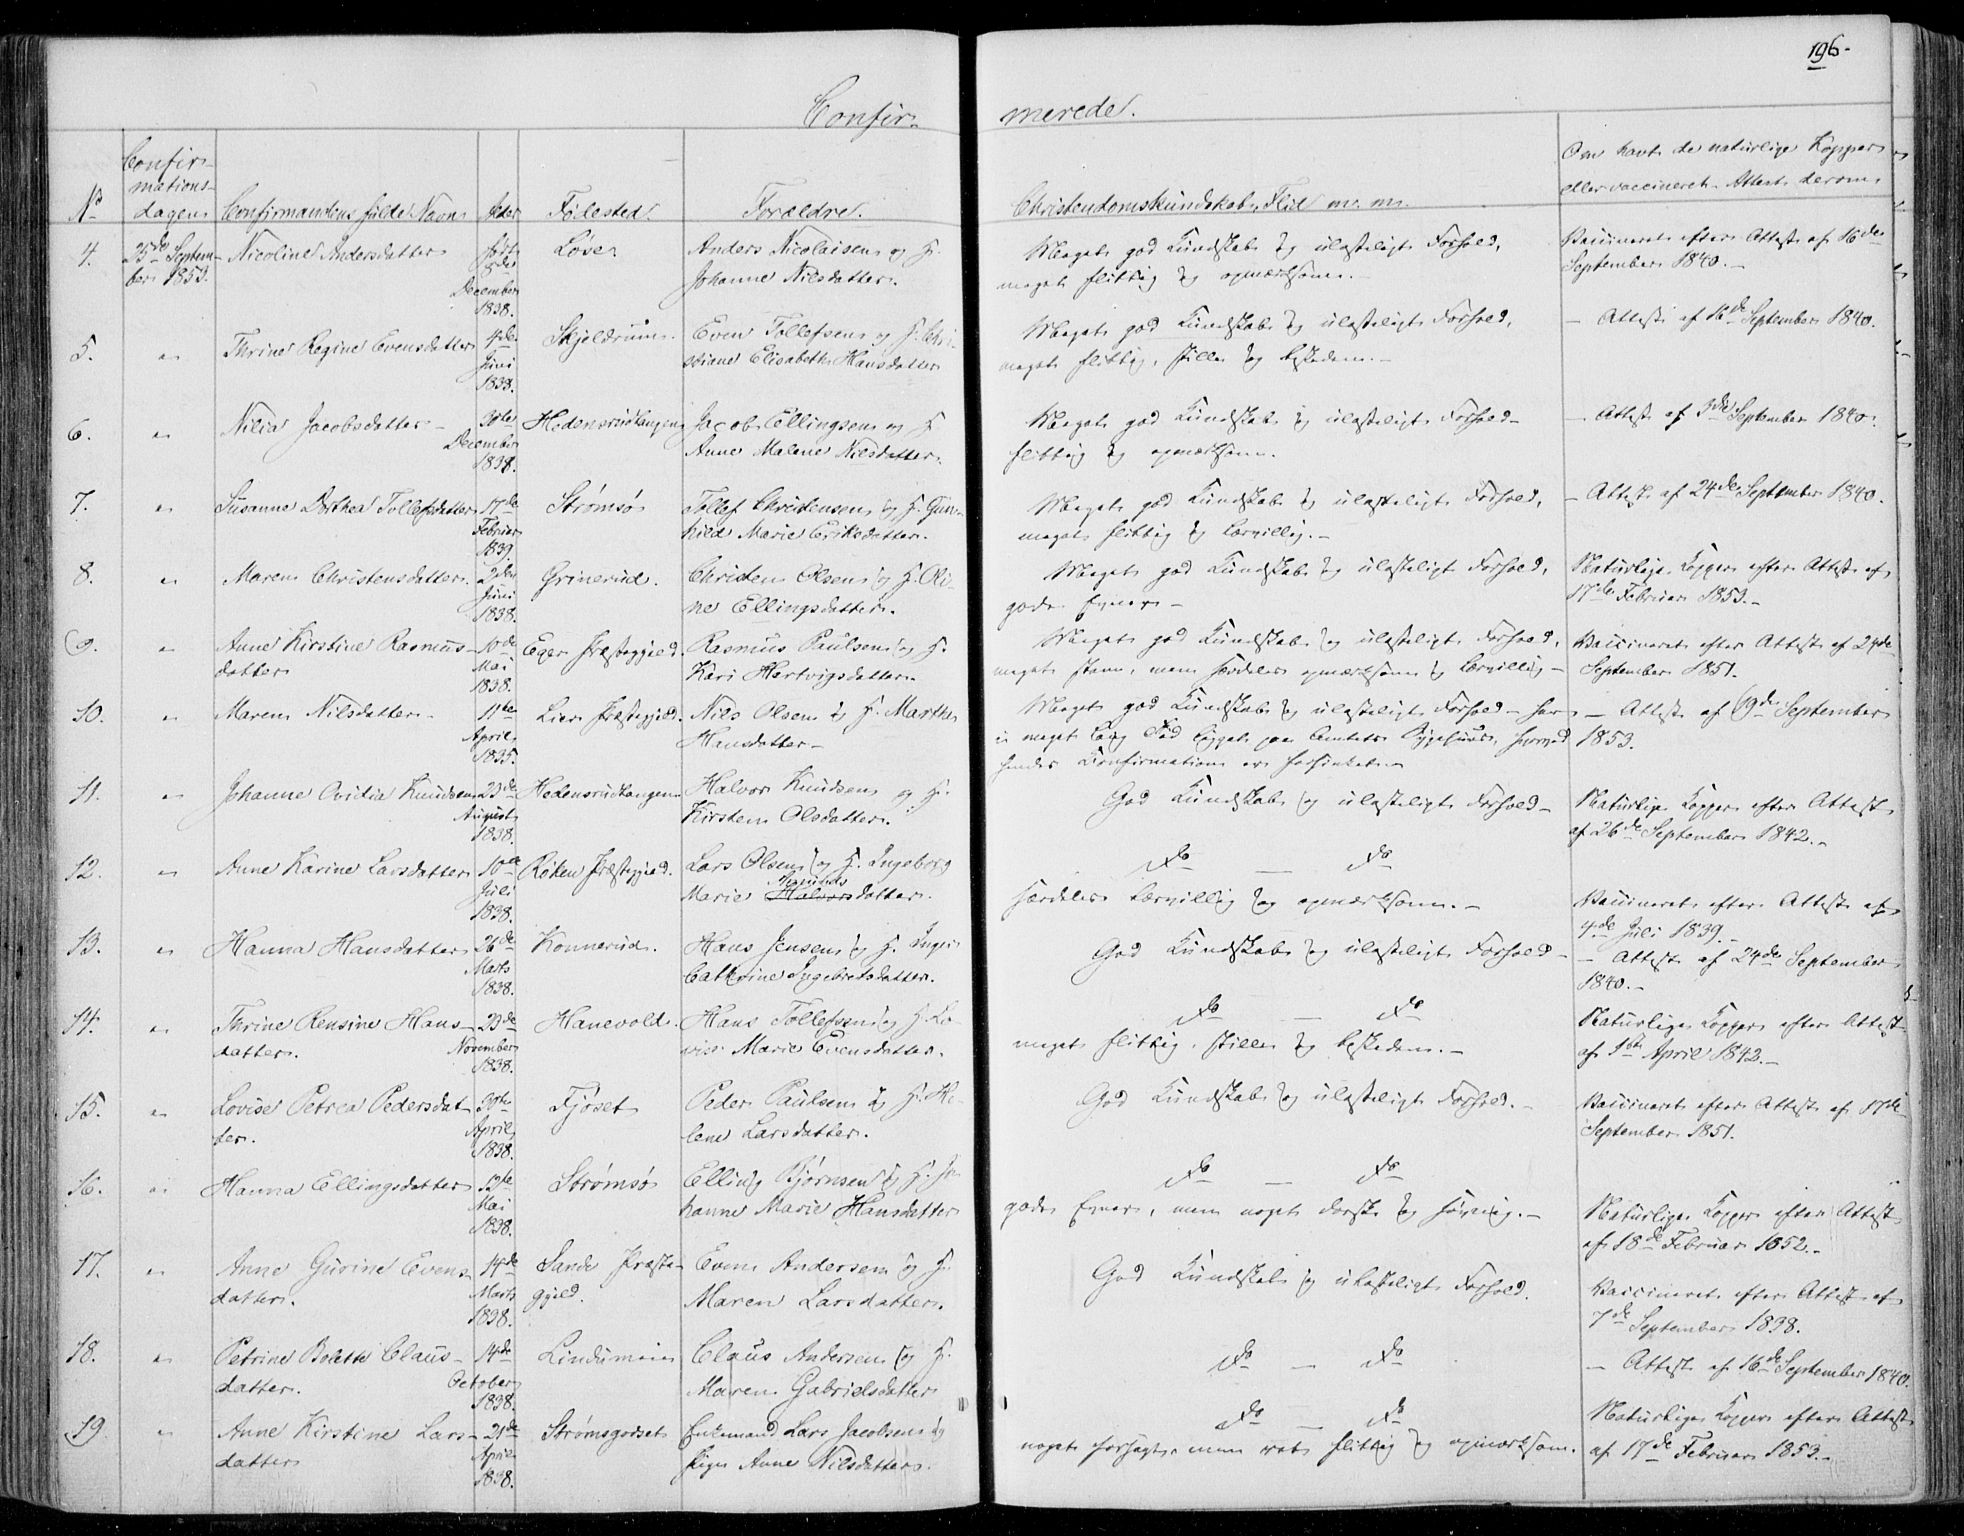 196.
Confirmerede.
No
Confirmationsdagen
Confirmandens fulde Navn
Alder
Fødested.
Forældre.
Christendomskundskab, Flid m. m.
Om havt de naturlige Kopper
eller vaccineret. Attest derom
4. 25de September 1853. Nicoline Andersdatter født 8de December 1838. Løser Anders Nicolaisen og H.
Johanne Nilsdatter.
Meget god Kundskab og ulasteligt Forhold,
meget flittig og opmærksom.
Vaccineret efter Attest af 16de
September 1840.
5. " Thrine Regine Evensdatter 4de Juni 1838. Skjeldrum. Even Tollefsen og H. Chri-
stiane Elisabeth Hansdatter
Meget god Kundskab og ulasteligt Forhold,
meget flittig, stille og beskeden.
— Attest af 16de September 1840.
6. " Nilia Jacobsdatter 30te December 1838. Hedensrudtangen Jacob Ellingsen og H.
Anne Malene Nilsdatter.
Meget god Kundskab og ulasteligt Forhold
flittig og opmærksom.
— Attest af 3de September 1840.
7. " Susanne Dorthea Tollefsdatter 17de Februar 1839. Strømsø Tollef Christensen og H. Gun-
hild Marie Eriksdatter.
Meget god Kundskab og ulasteligt Forhold,
meget flittig og lærvillig.
— Attest af 24de September 1840.
8. " Maren Christensdatter. 2den Juni 1838. Grinerud. Christen Olsen og H. Oli-
ne Ellingsdatter.
Meget god Kundskab og ulasteligt Forhold,
gode Evner
Naturlige Kopper efter Attest af
17de Februar 1853.
9. " Anne Kirstine Rasmus-
datter 10de Mai 1838. Eger Præstegjeld. Rasmus Paulsen og H.
Kari Hartvigsdatter.
Meget god Kundskab og ulasteligt Forhold,
meget stam, men særdeles opmærksom og lærvillig
Vaccineret efter Attest af 24de
September 1851.
10. " Maren Nilsdatter. 11te April 1835. Lier Præstegjeld. Nils Olsen og H. Marthe
Hansdatter
Meget god Kundskab og ulasteligt Forhold — har
i meget lang Tid ligget paa Amtets Sygehuus, hvorved
hendes Confirmation er forsinket.
— Attest af 19de September
1853.
11. " Johanne Ovidia Knudsen 23de August 1838. Hedensrudtangen Halvor Knudsen og H.
Kirsten Olsdatter.
God Kundskab og ulasteligt Forhold
Naturlige Kopper efter Attest
af 26de September 1842.
12. " Anne Karine Larsdatter 10de Juli 1838. Røken Præstegjeld. Lars Olsen og H. Ingeborg
Marie Halvorsdatter.
Do — Do
særdeles lærvillig og opmærksom.
Vaccineret efter Attest af
4de Juli 1839.
13. " Hanna Hansdatter 26de Marts 1838. Konnerud. Hans Jensen og H. Inger
Cathrine Ingebretsdatter.
God Kundskab og ulasteligt Forhold
— Attest af 24de September
1840.
14. " Thrine Rensine Hans-
datter. 23de November 1838. Hanevold. Hans Tollefsen og H. Lo-
vise Marie Evensdatter.
Do — Do
meget flittig, stille og beskeden.
Naturlige Kopper efter Attest
af 1ste April 1842.
15. " Lovise Petrea Pedersdat-
ter. 30te April 1838. Fjøset Peder Paulsen og H. He-
lene Larsdatter.
God Kundskab og ulasteligt Forhold.
Vaccineret efter Attest af 17de
September 1851.
16. " Hanna Ellingsdatter Mai 1838. Strømsø Elling Bjørnsen og H. Jo-
hanne Marie Hansdatter
Do — Do
gode Evner, men noget dorsk og
Naturlige Kopper efter Attest
af 18de Februar 1852.
17. " Anne Gurine Evens-
datter. 14de Marts 1838. Sande Præste-
gjeld. Even Andersen og H.
Maren Larsdatter.
God Kundskab og ulasteligt Forhold.
Vaccineret efter Attest af
7de September 1838.
18. " Petrine Bolette Claus-
datter. 14de October 1838. Lindumeie Claus Andersen og H.
Maren Gabrielsdatter
Do — Do
— Attest af 16de September 1840.
19. " Anne Kirstine Lars-
datter 21de April 1838. Strømsgodset Enkemand Lars Jacobsen og
Pige Anne Nilsdatter.
Do — Do
noget forsagt, men ret flittig og opmærksom.
Naturlige Kopper efter Attest
af 17de Februar 1853.